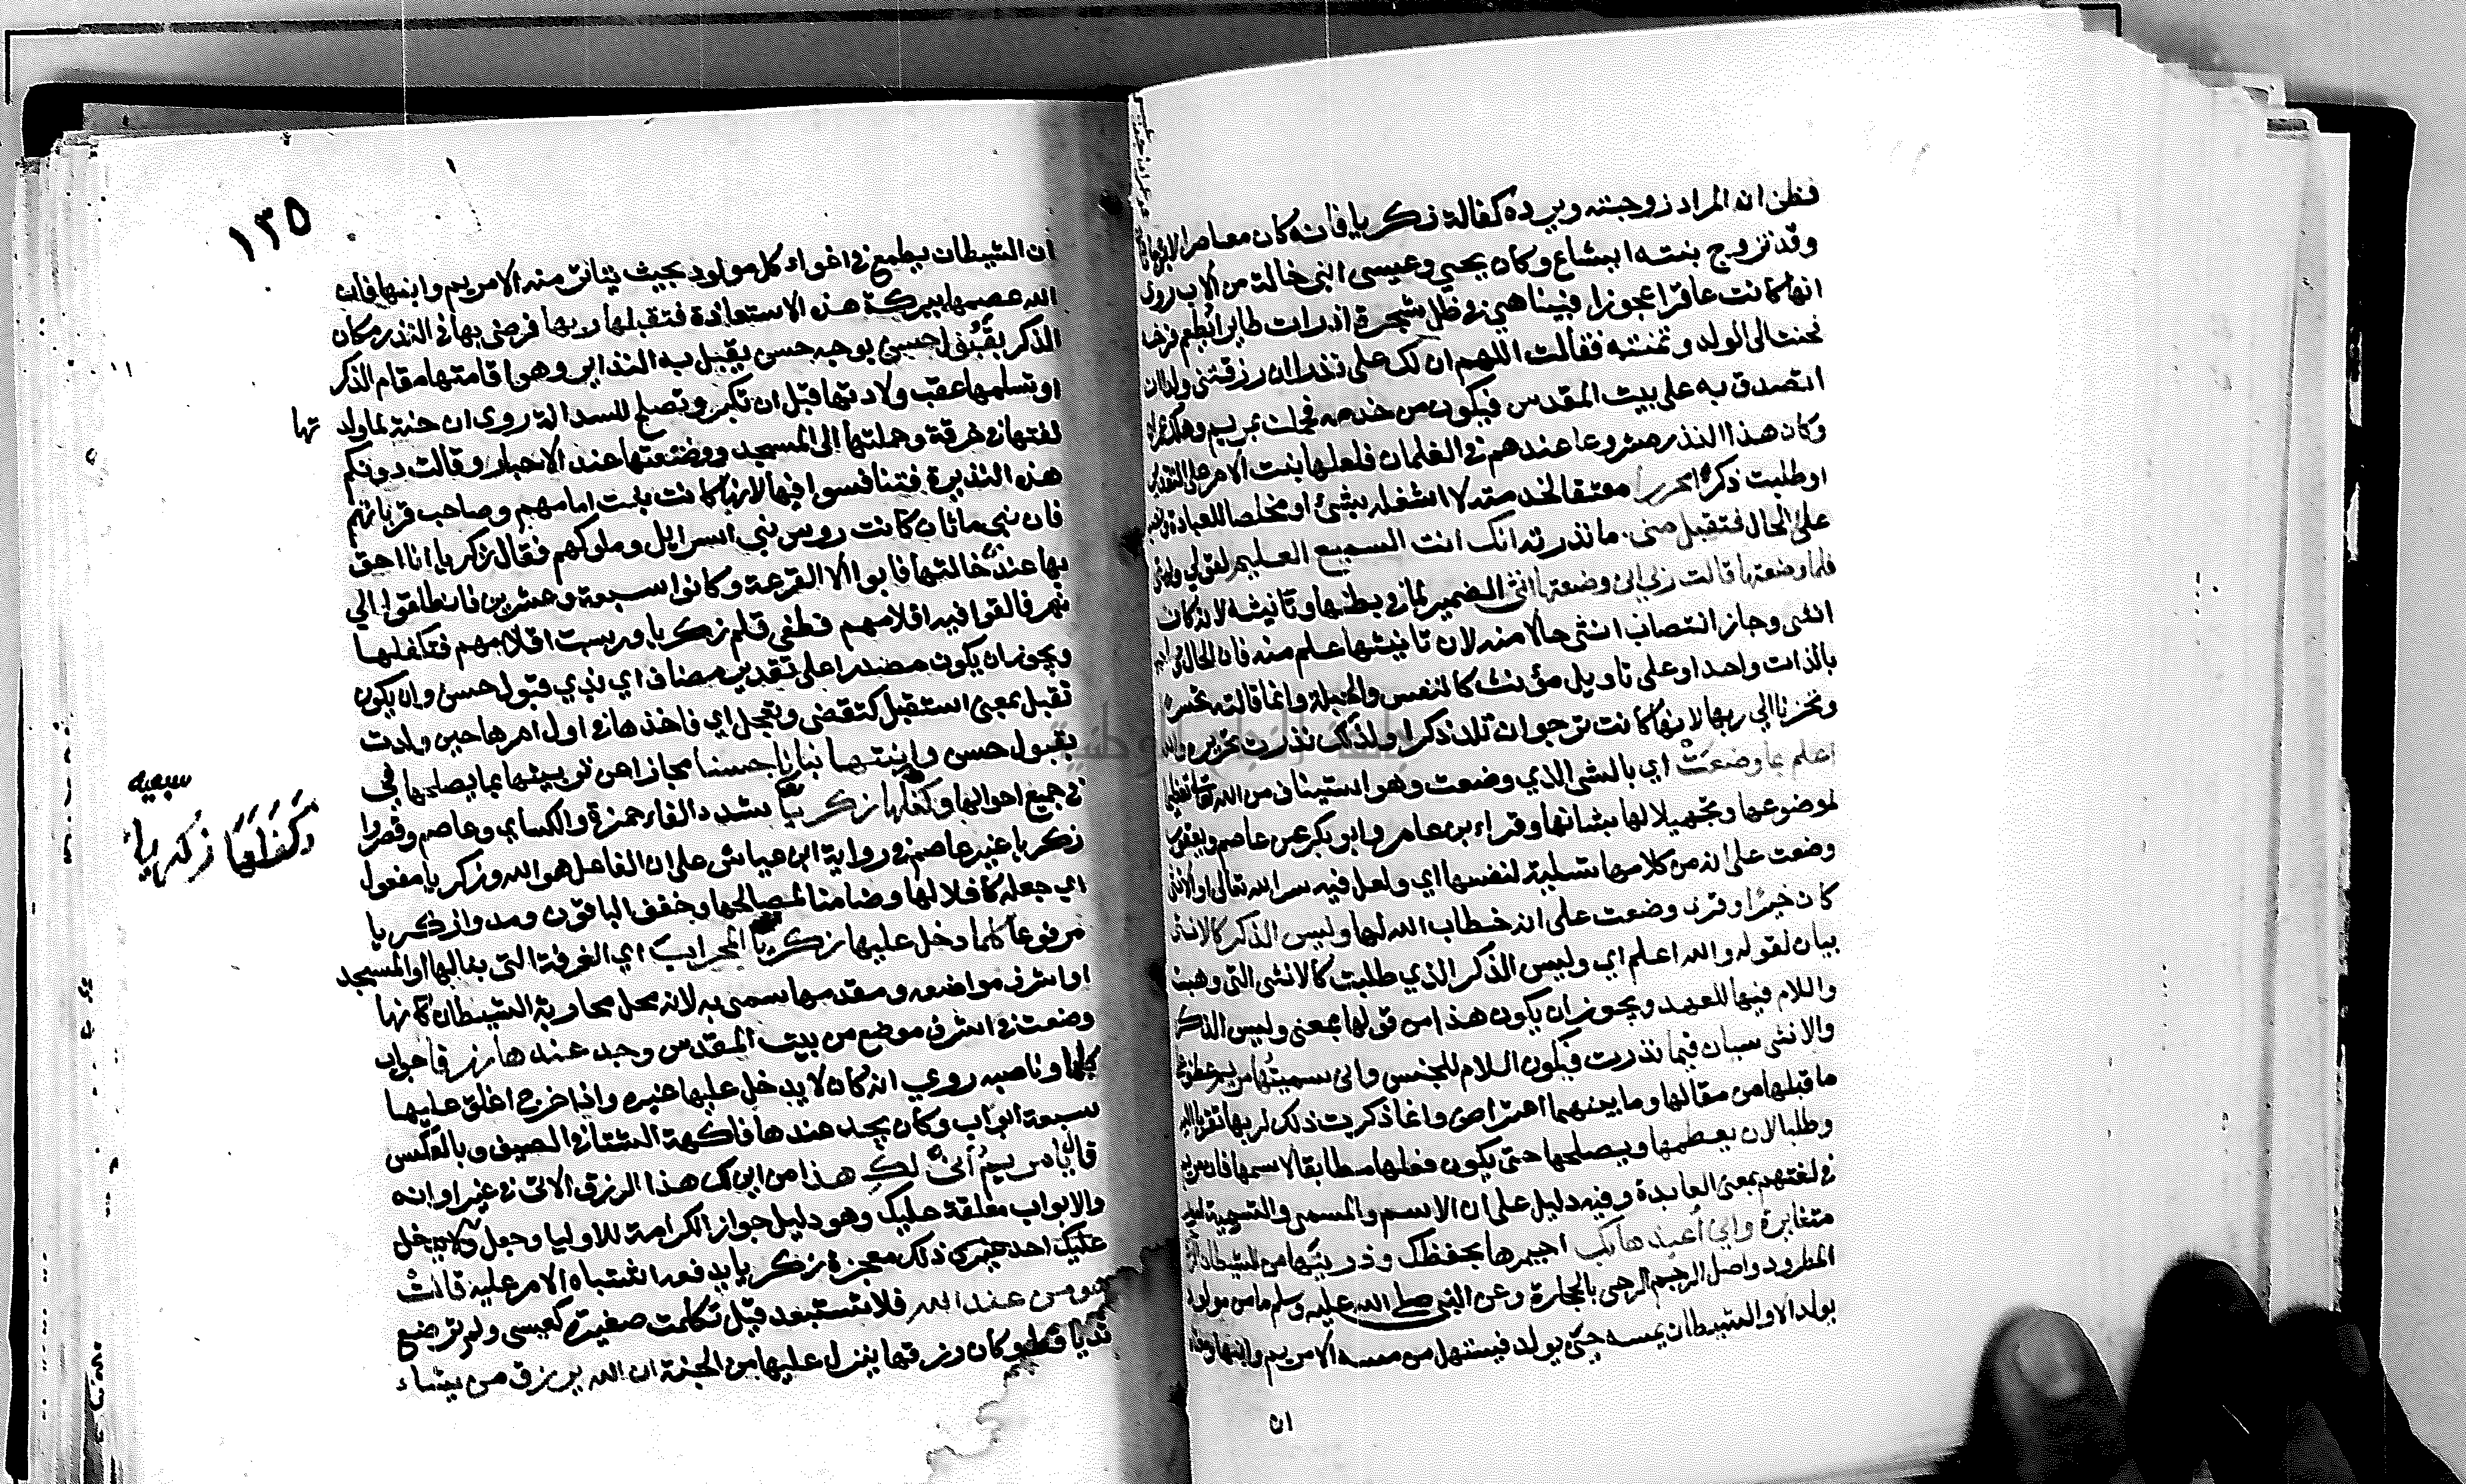 فظن ان المراد زوجته ويرده كفالة زكريا فانه كان معاصرا لابن ماثان
وقد تزوج بنته ايشاع وكان يحيى وعيسى ابني خالة من الاب روى
انها كانت عاقرا عجوزا فبينا هي في ظل شجرة اذ رات طايرا يطعم فرخه
فحنت الى الولد وتمنته فقالت اللهم ان لك على نذرا ان رزقتنى ولدا ان
اتصدق به على بيت المقدس فيكون من خدمه فحملت بمريم وهلك عمران
وكان هذا النذر مشروعا عندهم في الغلمان فلعلها بنت الامر على التقدير
او طلبت ذكرا محررا معتقا لخدمته لا اشغله بشئ او مخلصا للعبادة ونصبه
على الحال فتقبل منى ما نذرته انك انت السميع العليم لقولي ونيتى
فلما وضعتها قالت رب انى وضعتها انثى الضمير لما في بطنها وتانيثه لانه كان
انثى وجاز انتصاب انثى حالا منه لان تانيثها علم منه فان الحال وصاحبها
بالذات واحد او على تاويل مؤنث كالنفس والحبلة وانما قالته تحسرا
وتحزنا الى ربها لانها كانت ترجو ان تلد ذكرا ولذلك نذرت تحريره والله
اعلم بما وضعت اي بالشئ الذي وضعت وهو استيناف من الله تعالى تعظيما
لموضوعها وتجهيلا لها بشانها وقراء ابن عامر وابو بكر عن عاصم ويعقوب
وضعت على انه من كلامها تسلية لنفسها اي ولعل فيه سر الله تعالى او الانثى
كان خيرا وقرئ وضعت على انه خطاب الله لها وليس الذكر كالانثى
بيان لقوله والله اعلم اي وليس الذكر الذي طلبت كالانثى التى وهبت
واللام فيها للعهد ويجوز ان يكون هذا من قولها بمعنى وليس الذكر
والانثى سيان فيما نذرت فيكون اللام للجنس وانى سميتها مريم عطف على
ما قبلها من مقالها وما بينهما اعتراض وانما ذكرت ذلك لربها تقربا اليه
وطلبا لان يعصمها ويصلحها حتى يكون فعلها مطابقا لاسمها فان مريم
في لغتهم بمعنى العابدة وفيه دليل على ان الاسم والمسمى والتسمية امور
متغايرة وانى اعيذها بك اجيرها بحفظك وذريتها من الشيطان الرجيم
المطرود واصل الرجيم الرمي بالحجارة وعن النبى صلى الله عليه وسلم ما من مولود
يولد الا والشيطان يمسه حتى يولد فيستهل من مسه الا مريم وابنها ومعناه
ان
١٣٥
ان الشيطان يطمع في اغواء كل مولود بحيث يتاثر منه الا مريم وابنها فان
الله عصمها ببركة هذه الاستعاذة فتقبلها ربها فرضى بها في النذر مكان
الذكر بقبول حسن بوجه حسن يقبل به النذاير وهو اقامتها مقام الذكر
او تسلمها عقب ولادتها قبل ان تكبر وتصلح للسدانة روى ان حنة لما ولدتها
لفتها في خرقة وحملتها الى المسجد ووضعتها عند الاحبار وقالت دونكم
هذه النذيرة فتنافسوا فيها لانها كانت بنت امامهم وصاحب قربانهم
فان بني ماثان كانت روس بني اسرايل وملوكهم فقال زكريا انا احق
بها عندي خالتها فابوا الا القرعة وكانوا سبعة وعشرين فانطلقوا الي
نهر فالقوا فيه اقلامهم فطفى قلم زكريا ورسبت اقلامهم فتكفلها
ويجوز ان يكون مصدرا على تقدير مضاف اي بذي قبول حسن وان يكون
تقبل بمعنى استقبل كتقضى وتعجل اي فاخذها في اول امرها حين ولدت
بقبول حسن وانبتها نباتا حسنا مجاز عن تربيتها بما يصلحها في
في جميع احوالها وكفلها زكريا شدد الفاء حمزة والكساي وعاصم وقصروا
زكريا غير عاصم في رواية ابن عياش على ان الفاعل هو الله وزكريا مفعول
اي جعله كافلا لها وضامنا لمصالحها وخفف الباقون ومدوا زكريا
مرفوعا كلما دخل عليها زكريا المحراب اي الغرفة التى بنالها او المسجد
او اشرف مواضعه ومقدمها سمى به لانه محل محاربة الشيطان كانها
وضعت في اشرف موضع من بيت المقدس وجد عندها رزقا جواب
كلما وناصبه روي انه كان لا يدخل عليها غيره واذا خرج اغلق عليها
سبعة ابواب وكان يجد عندها فاكهة الشتا في الصيف وبالعكس
قال يا مريم انى لك هذا من اين لك هذا الرزق الاتى في غير اوانه
والابواب مغلقة عليك وهو دليل جواز الكرامة للاوليا وجعل ولا يدخل
عليك احد غيرى ذلك معجزة زكريا يدفعه اشتباه الامر عليه قالت
هو من عند الله فلا تستبعد قيل تكلمت صغيرة كعيسى ولم ترضع
ثديا قط وكان رزقها ينزل عليها من الجنة ان الله يرزق من يشاء
سبعيه
وكفلها زكرياء